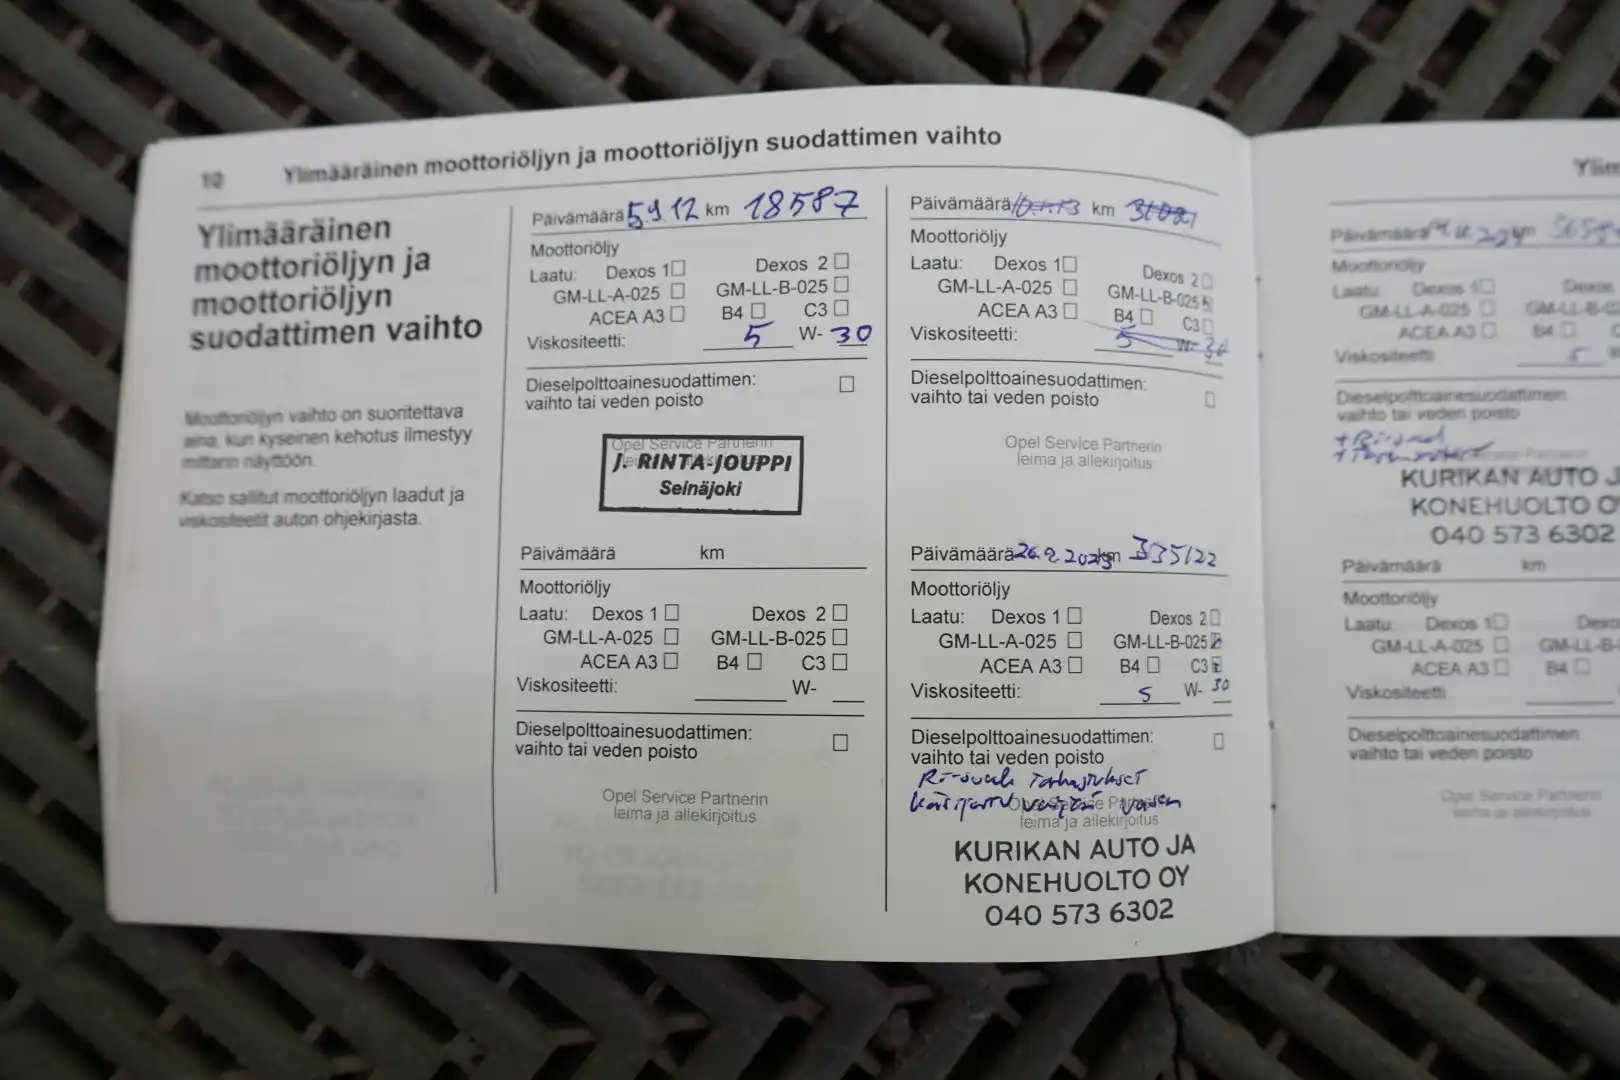 10 Ylimääräinen moottoriöljyn ja moottoriöljyn suodattimen vaihto
Ylimääräinen
moottoriöljyn ja
moottoriöljyn
suodattimen vaihto
Moottoriöljyn vaihto on suoritettava
aina, kun kyseinen kehotus ilmestyy
mittarin näyttöön.
Katso sallitut moottoriöljyn laadut ja
viskositeetit auton ohjekirjasta.
Päivämäärä 5.9.12 km 18587
Moottoriöljy
Laatu: Dexos 1 Dexos 2
GM-LL-A-025 GM-LL-B-025
ACEA A3 B4 C3
Viskositeetti: 5 W- 30
Dieselpolttoainesuodattimen:
vaihto tai veden poisto
Opel Service Partnerin
J. RINTA-JOUPPI
Seinäjoki
Päivämäärä km
Moottoriöljy
Laatu: Dexos 1 Dexos 2
GM-LL-A-025 GM-LL-B-025
ACEA A3 B4 C3
Viskositeetti: W-
Dieselpolttoainesuodattimen:
vaihto tai veden poisto
Opel Service Partnerin
leima ja allekirjoitus
Päivämäärä km
Moottoriöljy
Laatu: Dexos 1 Dexos 2
GM-LL-A-025 GM-LL-B-025
ACEA A3 B4 C3
Viskositeetti: 5 W- 30
Dieselpolttoainesuodattimen:
vaihto tai veden poisto
Opel Service Partnerin
leima ja allekirjoitus
Päivämäärä 26.9.2023 km 335122
Moottoriöljy
Laatu: Dexos 1 Dexos 2
GM-LL-A-025 GM-LL-B-025
ACEA A3 B4 C3
Viskositeetti: 5 W- 30
Dieselpolttoainesuodattimen:
vaihto tai veden poisto
leima ja allekirjoitus
KURIKAN AUTO JA
KONEHUOLTO OY
040 573 6302
Päivämäärä
Moottoriöljy
Laatu: Dexos 1
GM-LL-A-025
ACEA A3 B4
Viskositeetti 5
Dieselpolttoainesuodattimen
vaihto tai veden poisto
KURIKAN AUTO
KONEHUOLTO
040 573 6302
Päivämäärä km
Moottoriöljy
Laatu: Dexos 1
GM-LL-A-025
ACEA A3 B4
Viskositeetti
Dieselpolttoainesuodattimen
vaihto tai veden poisto
Opel Service Partnerin
leima ja allekirjoitus